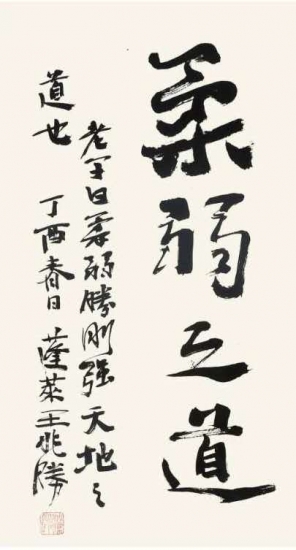 柔弱之道
老子曰柔弱勝剛強天地之
道也 丁酉春日蓬萊王兆勝